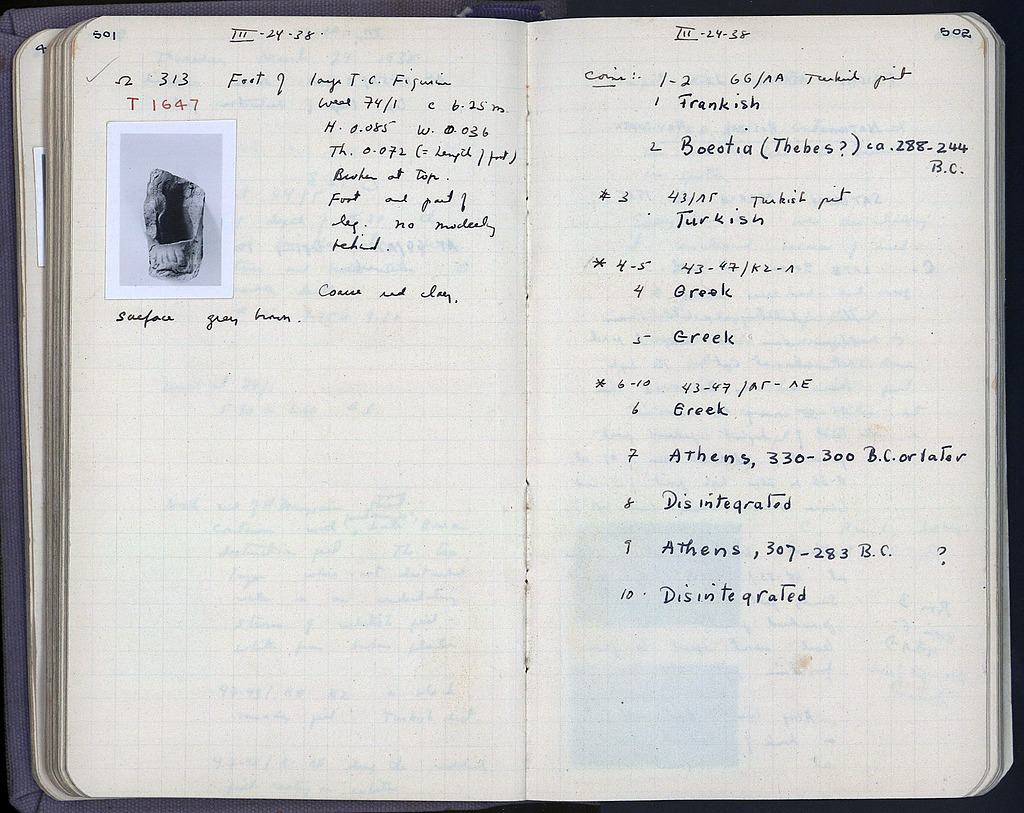 501
III-24-38.
Ω 313 Foot of large T.C. Figurine
T 1647
Well 74/1 c 6.25 m.
H. 0.085 W. 0.036
Th. 0.072 (= Length / foot)
Broken at Top.
Foot and part of
leg. no modeling
behind.
Coarse red clay.
surface grey brown.
III-24-38
502
Coins:- 1-2 66/ΛΑ Turkish pit
1 Frankish
2 Boeotia (Thebes?) ca. 288-244
B.C.
* 3 43/ΛΓ Turkish pit
Turkish
* 4-5 43-47/K2-Λ
4 Greek
5 Greek
* 6-10 43-47/ΛΓ-ΛΕ
6 Greek
7 Athens, 330-300 B.C. or later
8 Disintegrated
9 Athens, 307-283 B.C. ?
10. Disintegrated